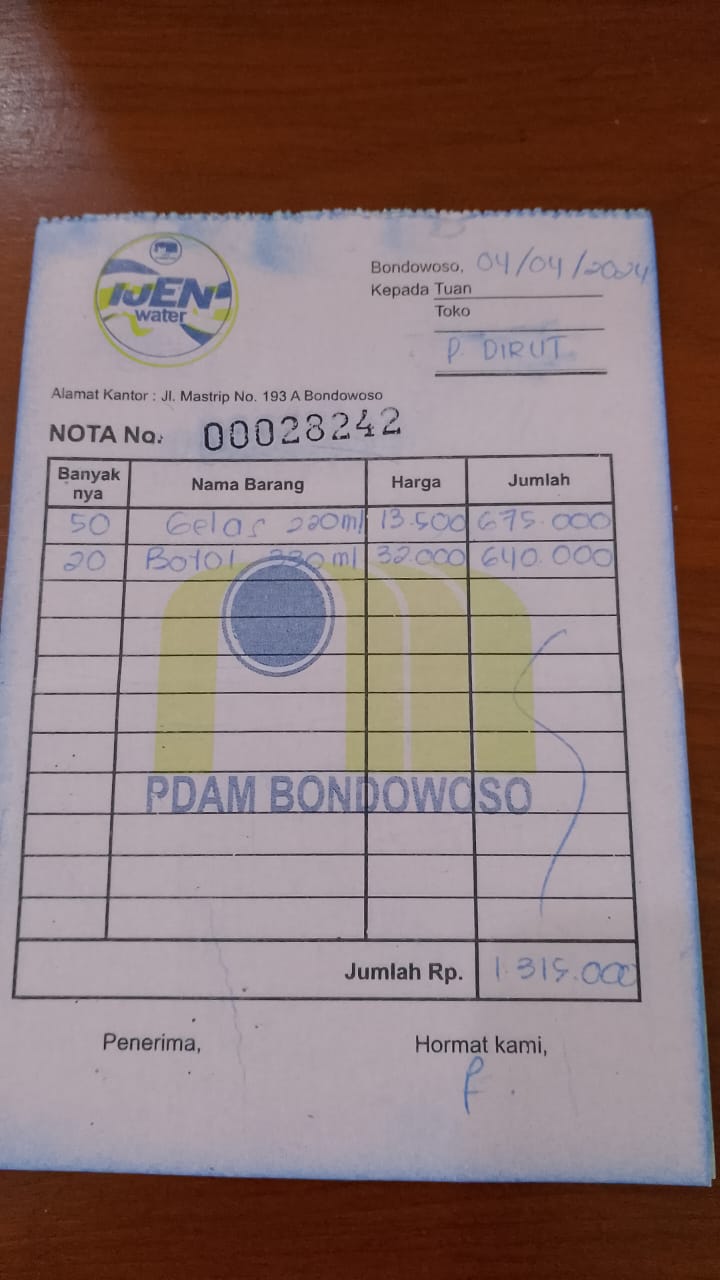 IJEN
water
Bondowoso, 04/04/2024
Kepada Tuan
Toko
P. DIRUT
Alamat Kantor : Jl. Mastrip No. 193 A Bondowoso
NOTA No. 00028242
Banyak nya Nama Barang Harga Jumlah
50 Gelas 220ml 13.500 675.000
20 Botol 330 ml 32.000 640.000
PDAM BONDOWOSO
Jumlah Rp. 1.315.000
Penerima, Hormat kami,